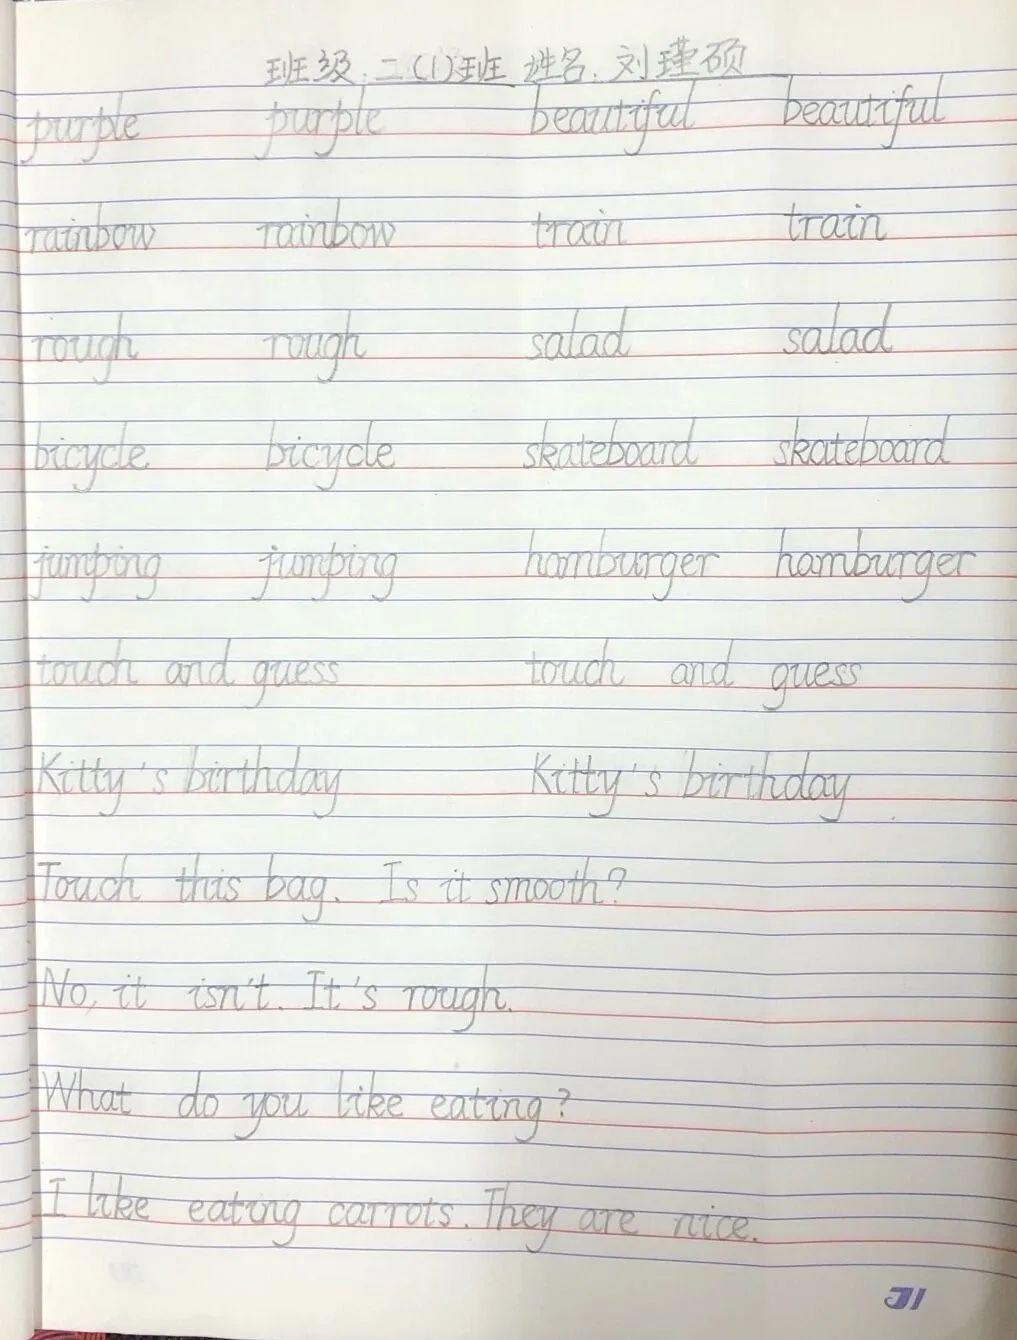 班级:二(1)班 姓名:刘瑾硕
purple purple beautiful beautiful
rainbow rainbow train train
rough rough salad salad
bicycle bicycle skateboard skateboard
jumping jumping hamburger hamburger
touch and guess touch and guess
Kitty's birthday Kitty's birthday
Touch this bag. Is it smooth?
No, it isn't. It's rough.
What do you like eating?
I like eating carrots. They are nice.